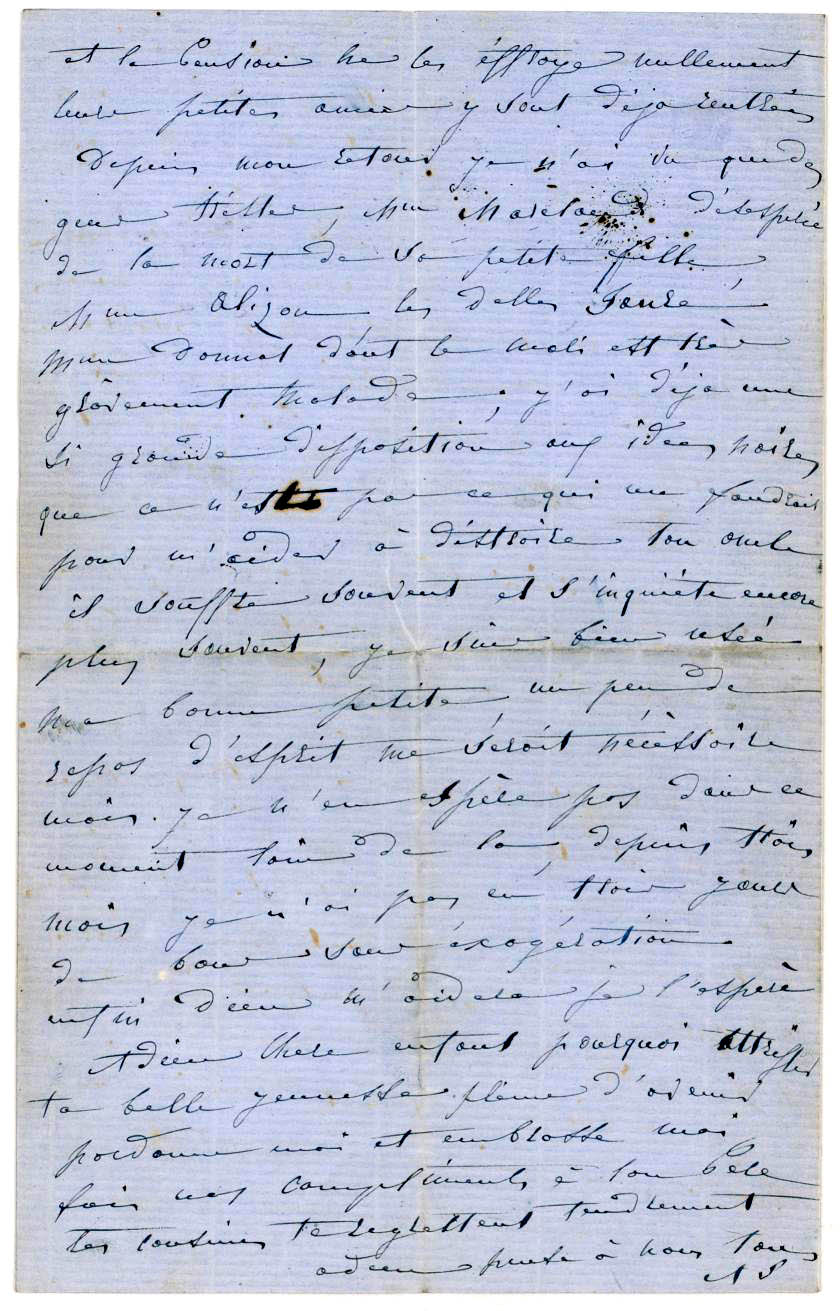 et la Pension ne les éffroye nullement
leurs petites amies y sont déja rentrées
Depuis mon retour je n'ai vu que des
gens tristes, Mme désespérée
de la mort de sa petite fille
Mme Alizon les Delles
Mme Donnat dont le mari est très
gràvement malade, j'ai déja une
si grande disposition aux idées noires
que ce n'est pas ce qui me faudrait
pour m'aider à distraire ton oncle
il souffre souvent et s'inquiète encore
plus souvent, je suis bien usée
ma bonne petite un peu de
repos d'esprit me seroit nécèssaire
mais je n'en espère pas dans ce
moment loin de la, depuis trois
mois je n'ai pas eu trois jours
de bons sans éxagération
enfin Dieu m'aidera je l'espère
Adieu chere enfant pourquoi attrister
ta belle jeunesse pleine d'avenir
pardonne moi et embrasse moi
fais mes compliments à ton Père
tes cousines te regrettent tendrement
adieu pense à nous tous
A S